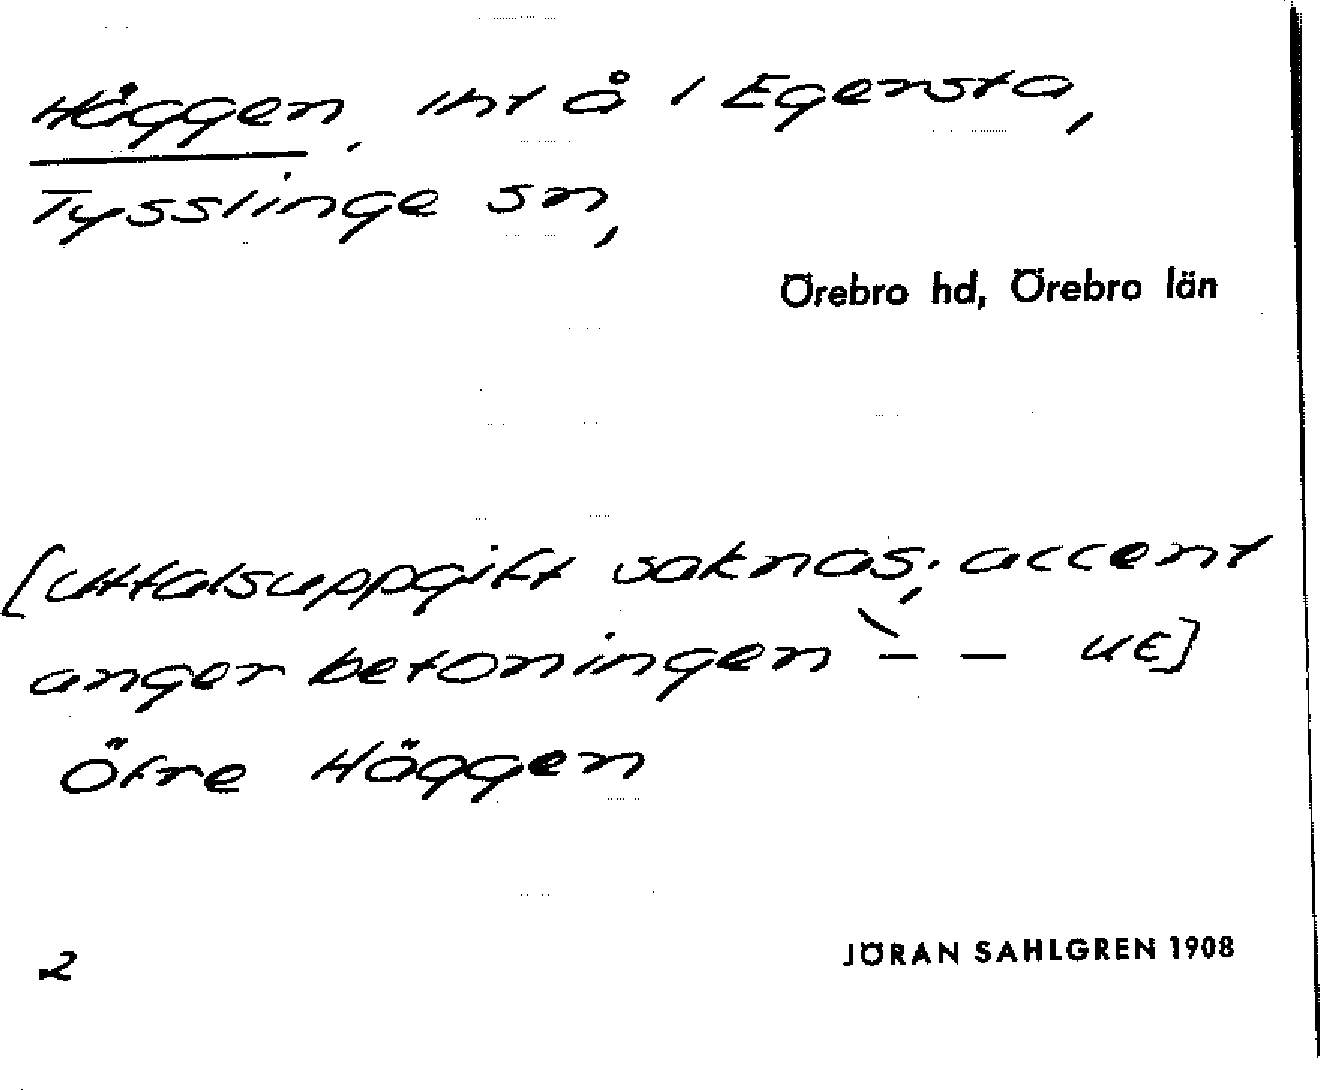 Häggen, int å i Egersta,
Tysslinge sn,
Örebro hd, Örebro län
[Uttalsuppgift saknas; accent
anger betoningen ` – – UE]
Öfre Häggen
2
JÖRAN SAHLGREN 1908